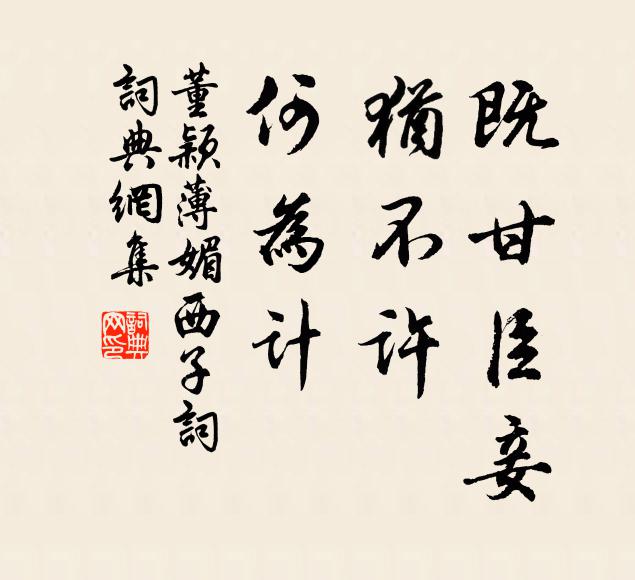 既甘臣妾
猶不許
何為計
董穎薄媚西子詞
詞典網集
詞典網印